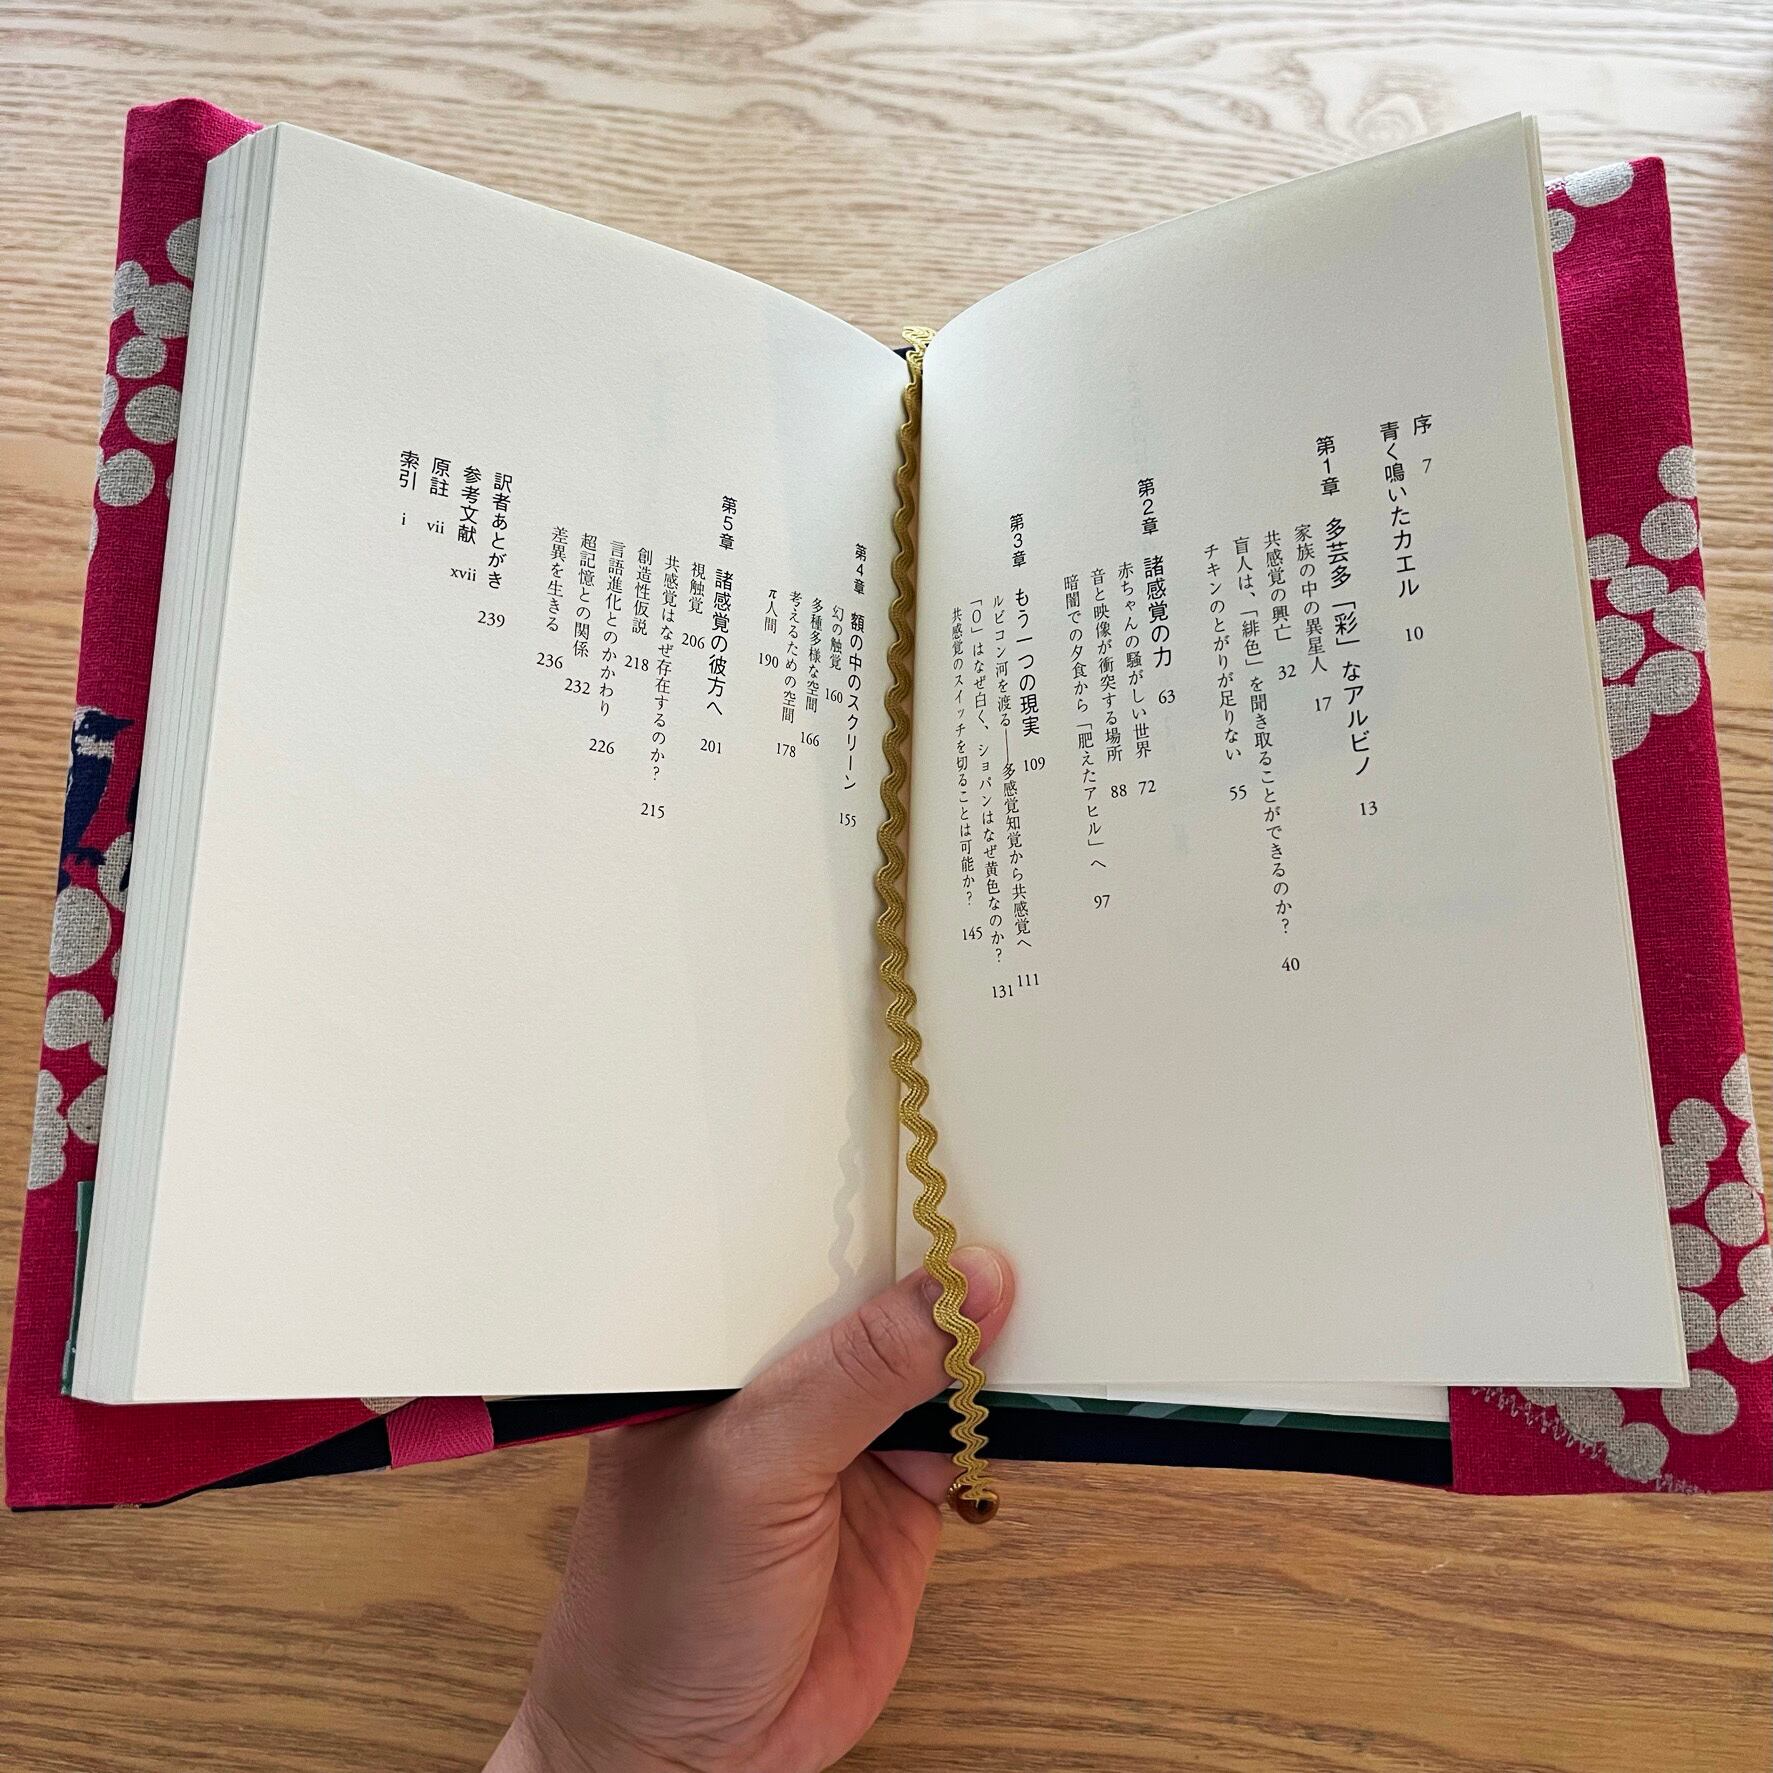 序 7
青く鳴いたカエル 10
第1章 多芸多「彩」なアルビノ 13
家族の中の異星人 17
共感覚の興亡 32
盲人は、「緋色」を聞き取ることができるのか? 40
チキンのとがりが足りない 55
第2章 諸感覚の力 63
赤ちゃんの騒がしい世界 72
音と映像が衝突する場所 88
暗闇での夕食から「肥えたアヒル」へ 97
第3章 もう一つの現実 109
ルビコン河を渡る――多感覚知覚から共感覚へ 111
「0」はなぜ白く、ショパンはなぜ黄色なのか? 131
共感覚のスイッチを切ることは可能か? 145
第4章 額の中のスクリーン 155
幻の触覚 160
多種多様な空間 166
考えるための空間 178
π人間 190
第5章 諸感覚の彼方へ 201
視触覚 206
共感覚はなぜ存在するのか? 215
創造性仮説 218
言語進化とのかかわり 226
超記憶との関係 232
差異を生きる 236
訳者あとがき 239
参考文献 xvii
原註 vii
索引 i